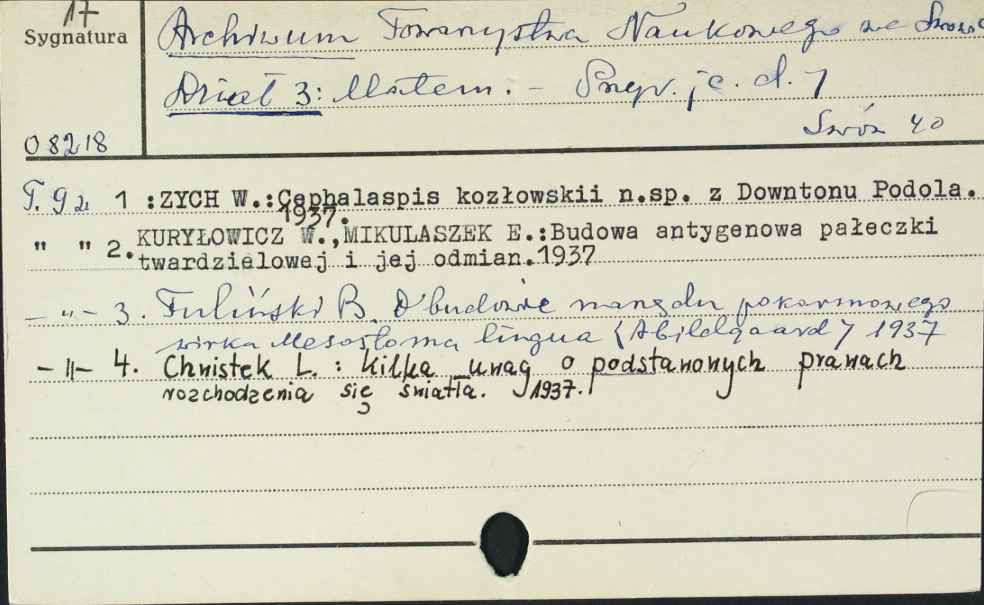 17
Sygnatura
08218
Archiwum Towarzystwa Naukowego we Lwow
Dział 3: Matem. - Przyr. je. d. 7
Lwów 40
T. 9 z. 1 :ZYCH W.:Cephalaspis kozłowskii n.sp. z Downtonu Podola.
1937.
" " 2. KURYŁOWICZ W.,MIKULASZEK E.:Budowa antygenowa pałeczki
twardzielowej i jej odmian.1937
- " - 3. Fuliński B. O budowie narządu pokarmowego
wirka Mesostoma lingua (Abildgaard) 1937
- " - 4. Chwistek L. : Kilka uwag o podstawowych prawach
rozchodzenia się światła. 1937.